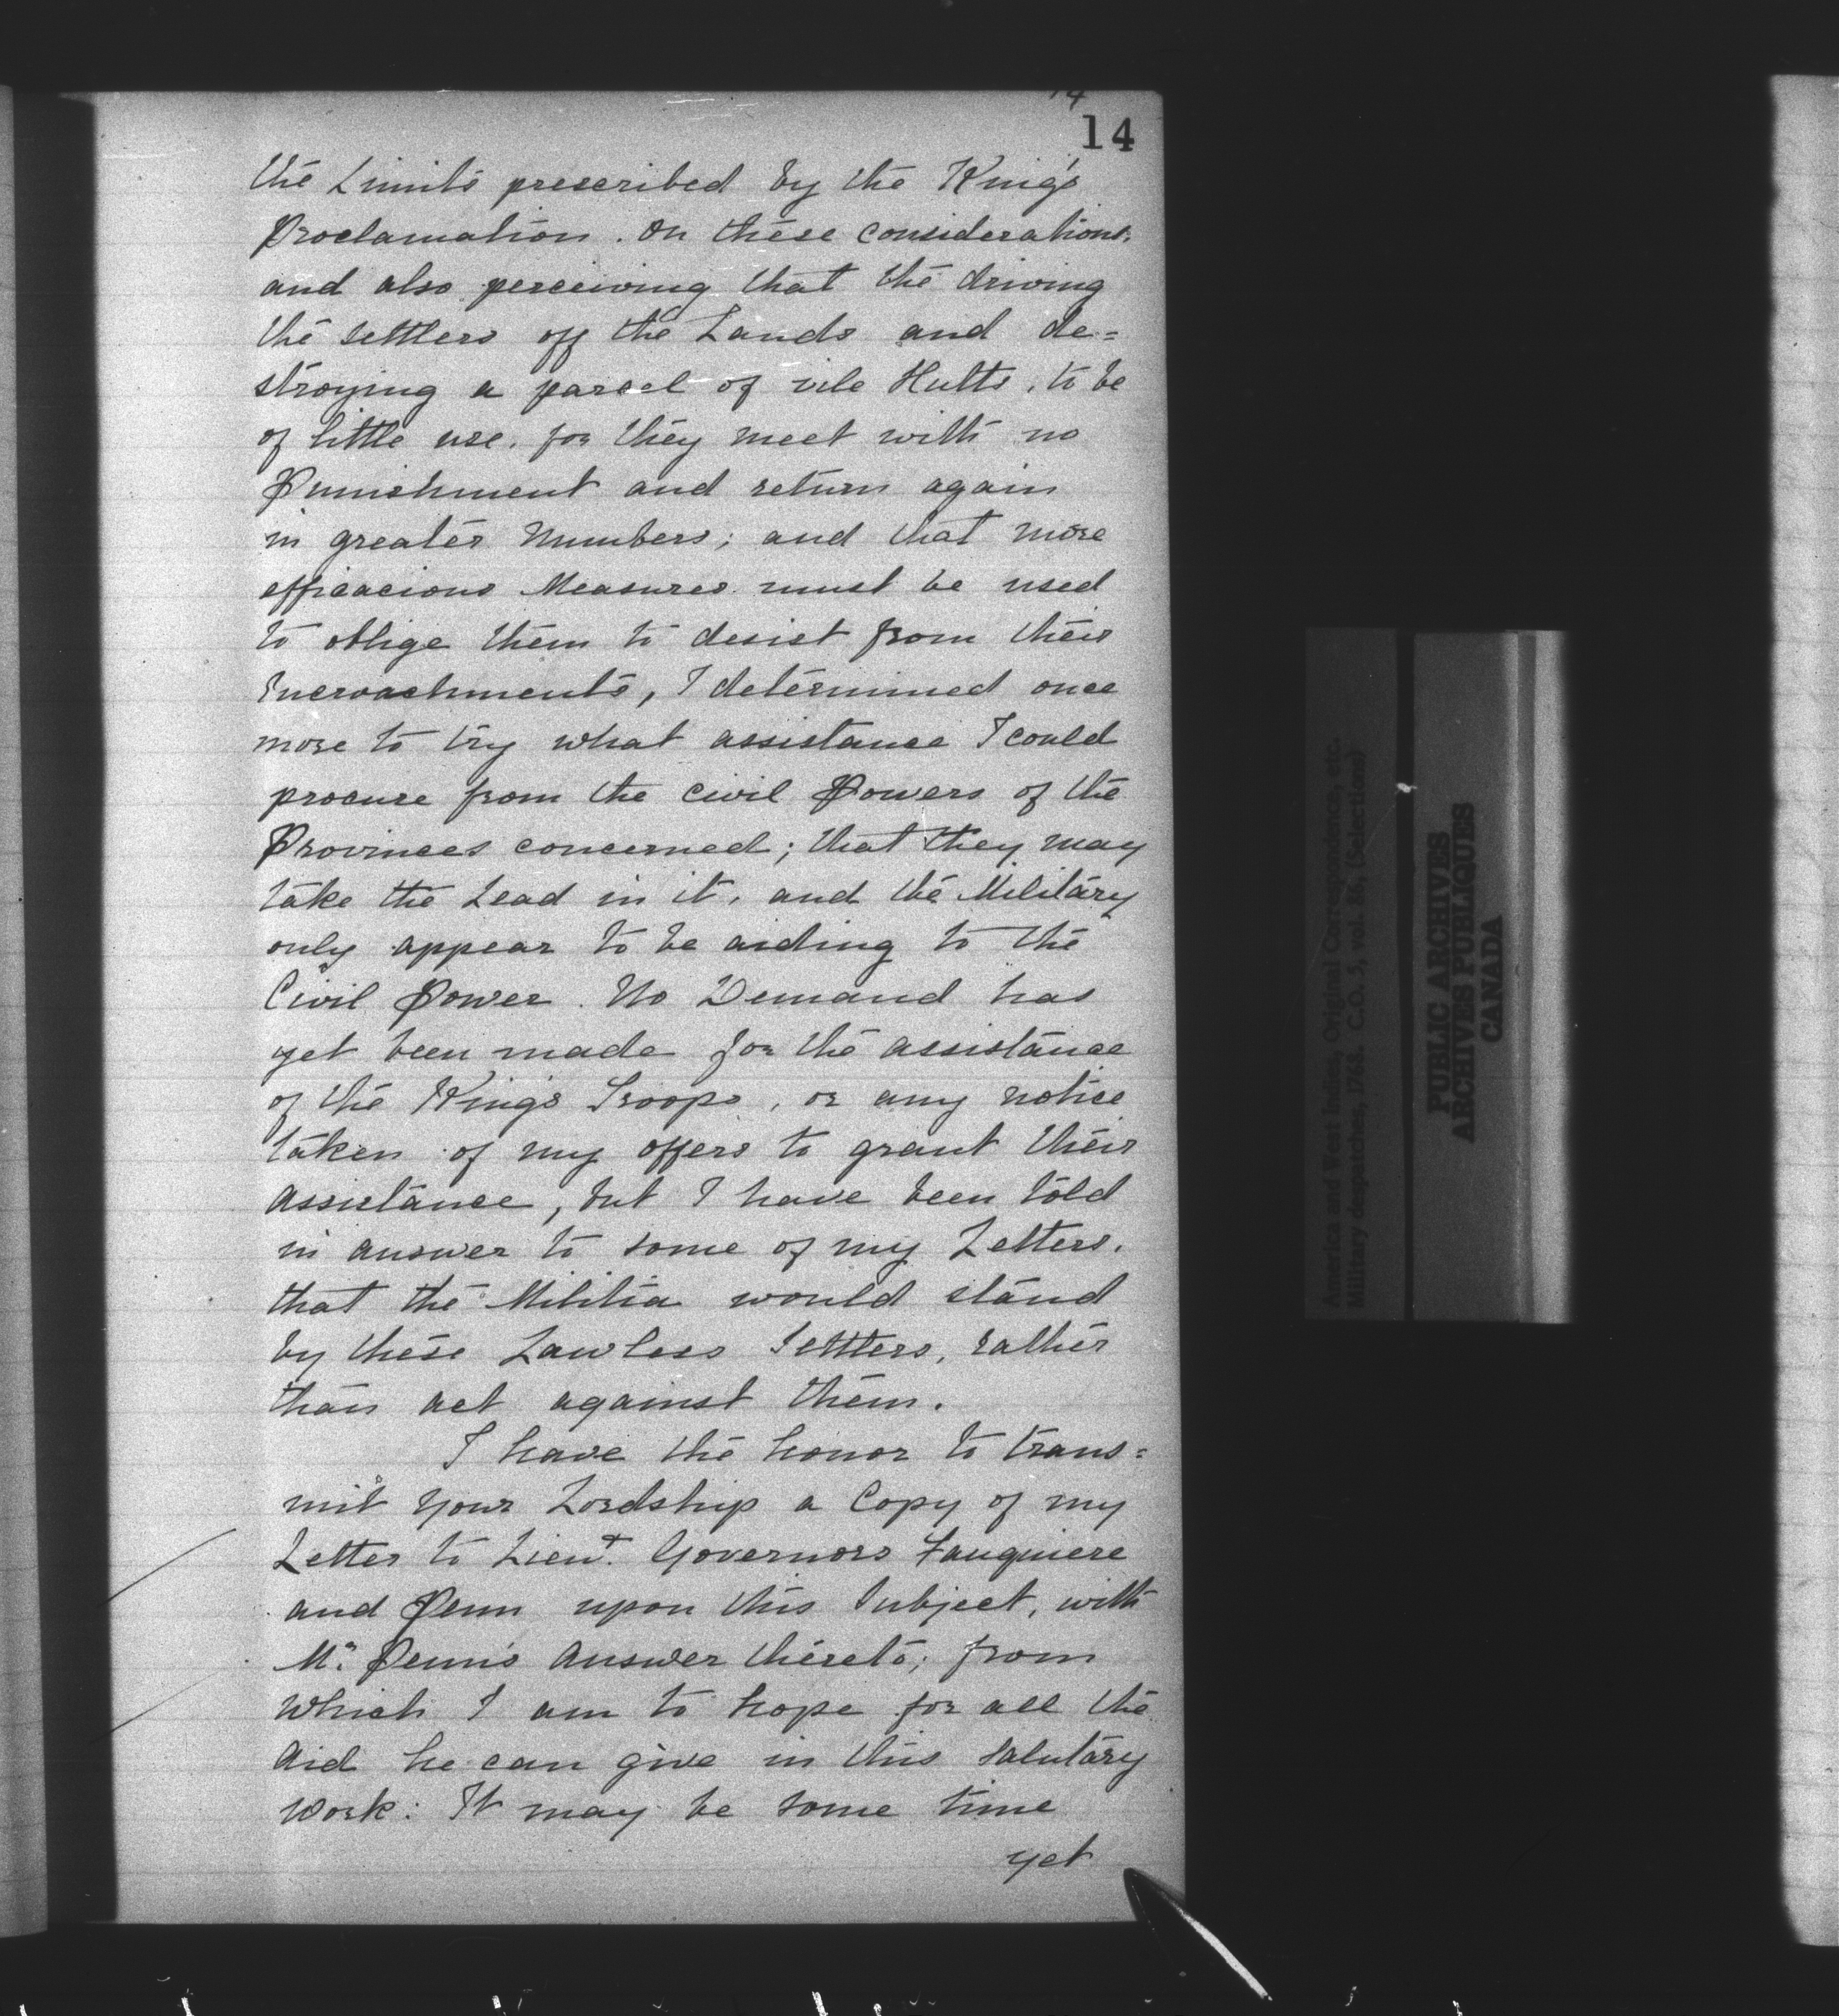 14
14
the Limits prescribed by the King's
Proclamation. On these considerations,
and also perceiving that the driving
the settlers off the Lands and de=
stroying a parcel of vile Hutts, to be
of little use. for they meet with no
Punishment and return again
in greater Numbers; and that more
efficacious Measures must be used
to oblige them to desist from their
Incroachments, I determined once
more to try what assistance I could
procure from the Civil Powers of the
Provinces concerned; that they may
take the Lead in it, and the Military
only appear to be aiding to the
Civil Power. No Demand has
yet been made for the assistance
of the King's Troops, or any notice
taken of my offers to grant their
assistance, but I have been told
in answer to some of my Letters,
that the Militia would stand
by these Lawless Settlers, rather
than act against them.
I have the honor to trans=
mit Your Lordship a Copy of my
Letter to Lieut. Governors Fauquiere
and Penn upon this Subject, with
Mr. Penn's Answer thereto; from
which I am to hope for all the
Aid he can give in this salutary
Work: It may be some time
yet
America and West Indies, Original Correspondence, etc.
Military despatches, 1768. C.O. 5, vol. 86, (Selections)
PUBLIC ARCHIVES
ARCHIVES PUBLIQUES
CANADA